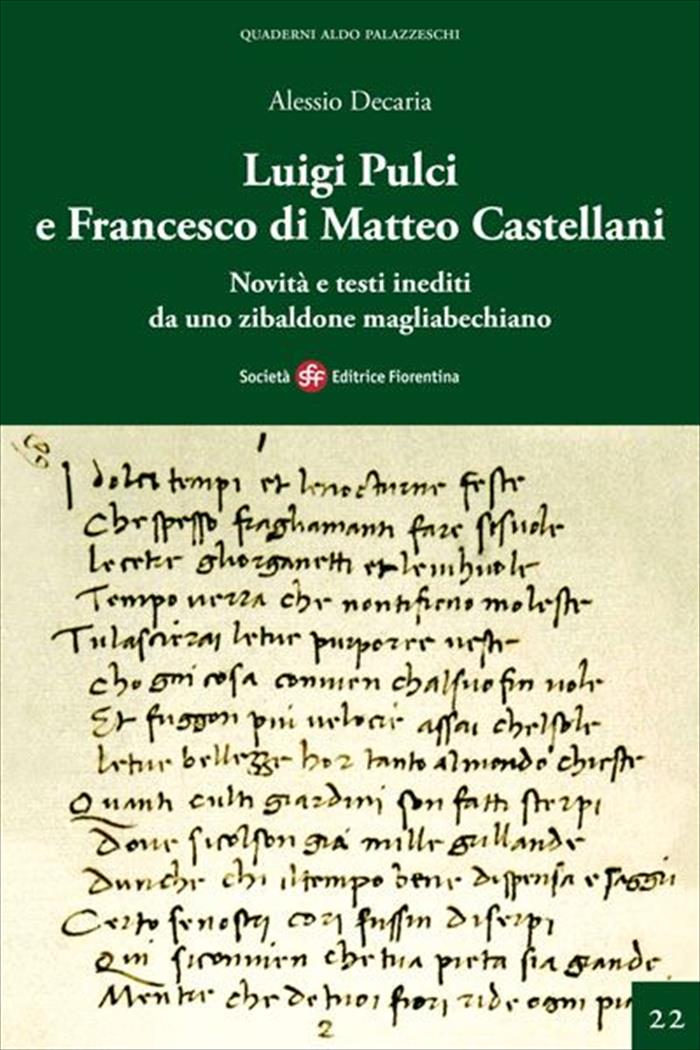 QUADERNI ALDO PALAZZESCHI
Alessio Decaria
Luigi Pulci
e Francesco di Matteo Castellani
Novità e testi inediti
da uno zibaldone magliabechiano
Società sff Editrice Fiorentina
I dolci tempi et lenocturne feste
Che spesso fraghamanti fare sisuole
Lecetre ghorganetti et
Tempo verra che nontifieno moleste
Tulascierai letue purporee veste
chogni cosa convien chalsuo fin vole
Et fuggon piu veloci assai chelsole
letue bellezze hor tanto almondo chieste
Quanti culti giardini son fatti sterpi
Dove sicolson gia mille grillande
Dunche chi iltempo bene dispensa e saggio
Certo senostri cori fussin diserpi
Qui siconvien che tua pieta sia grande
Mentre che detuoi fiori ride ogni
2
22